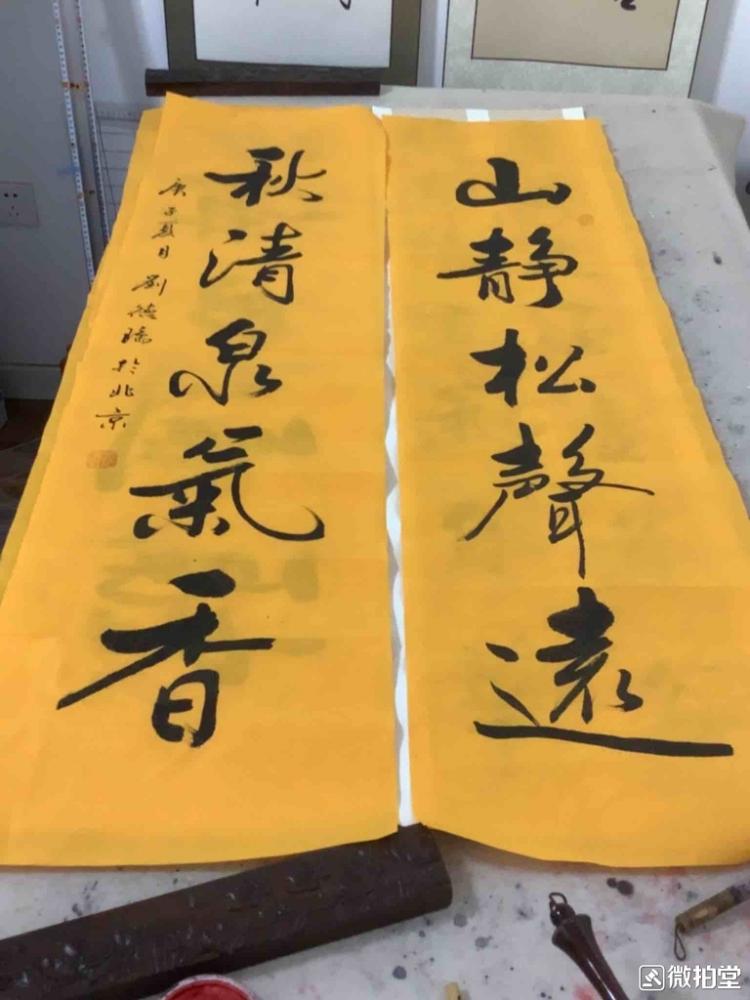 山静松聲遠
秋清泉氣香
庚子夏月劉德騰於北京
微拍堂